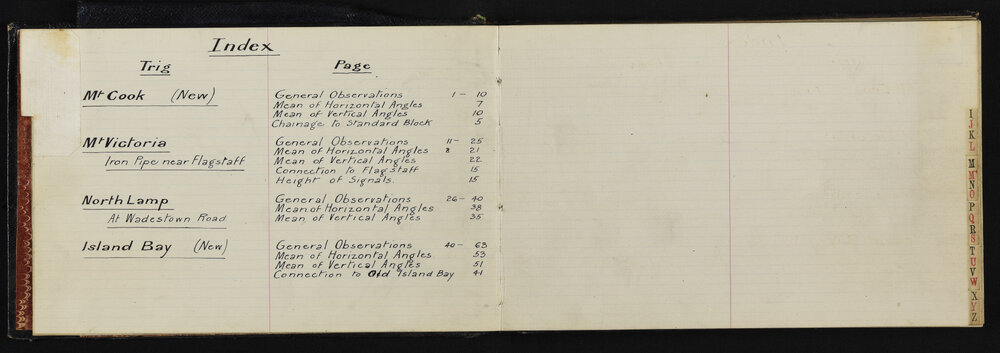 Index
Trig Page
Mt Cook (New) General Observations 1 - 10
Mean of Horizontal Angles 7
Mean of Vertical Angles 10
Chainage to Standard Block 5
Mt Victoria General Observations 11 - 25
Iron Pipe near Flagstaff Mean of Horizontal Angles 21
Mean of Vertical Angles 22
Connection to Flagstaff 15
Height of Signals. 15
North Lamp General Observations 26 - 40
At Wadestown Road Mean of Horizontal Angles 38
Mean of Vertical Angles 35
Island Bay (New) General Observations 40 - 63
Mean of Horizontal Angles 53
Mean of Vertical Angles 51
Connection to Old Island Bay 41
I
J
K
L
M
Mc
N
O
P
Q
R
S
T
U
V
W
X
Y
Z